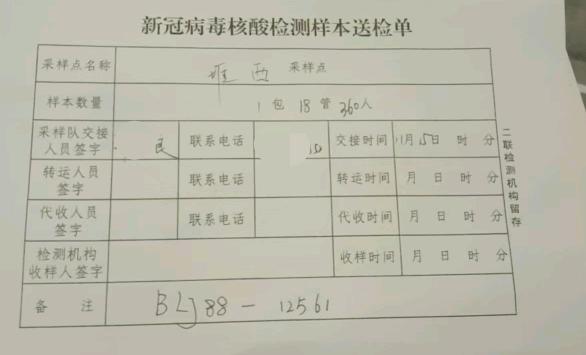 新冠病毒核酸检测样本送检单
采样点名称 堆西 采样点
样本数量 1包 18管 360人
采样队交接人员签字 良 联系电话 交接时间 11月15日 时 分
转运人员签字 联系电话 转运时间 月 日 时 分
代收人员签字 联系电话 代收时间 月 日 时 分
检测机构收样人签字 收样时间 月 日 时 分
备注 BLJ88-12561
二联检测机构留存